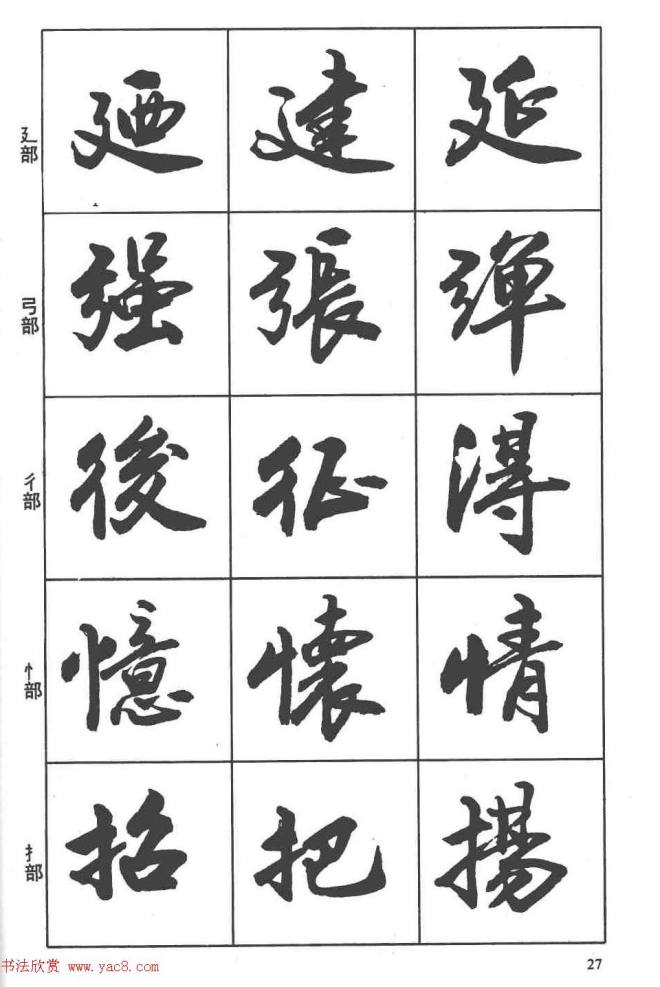 廴部 廼 建 延
弓部 强 張 彈
彳部 後 征 得
忄部 憶 懷 情
扌部 招 把 揚
27
书法欣赏 www.yac8.com